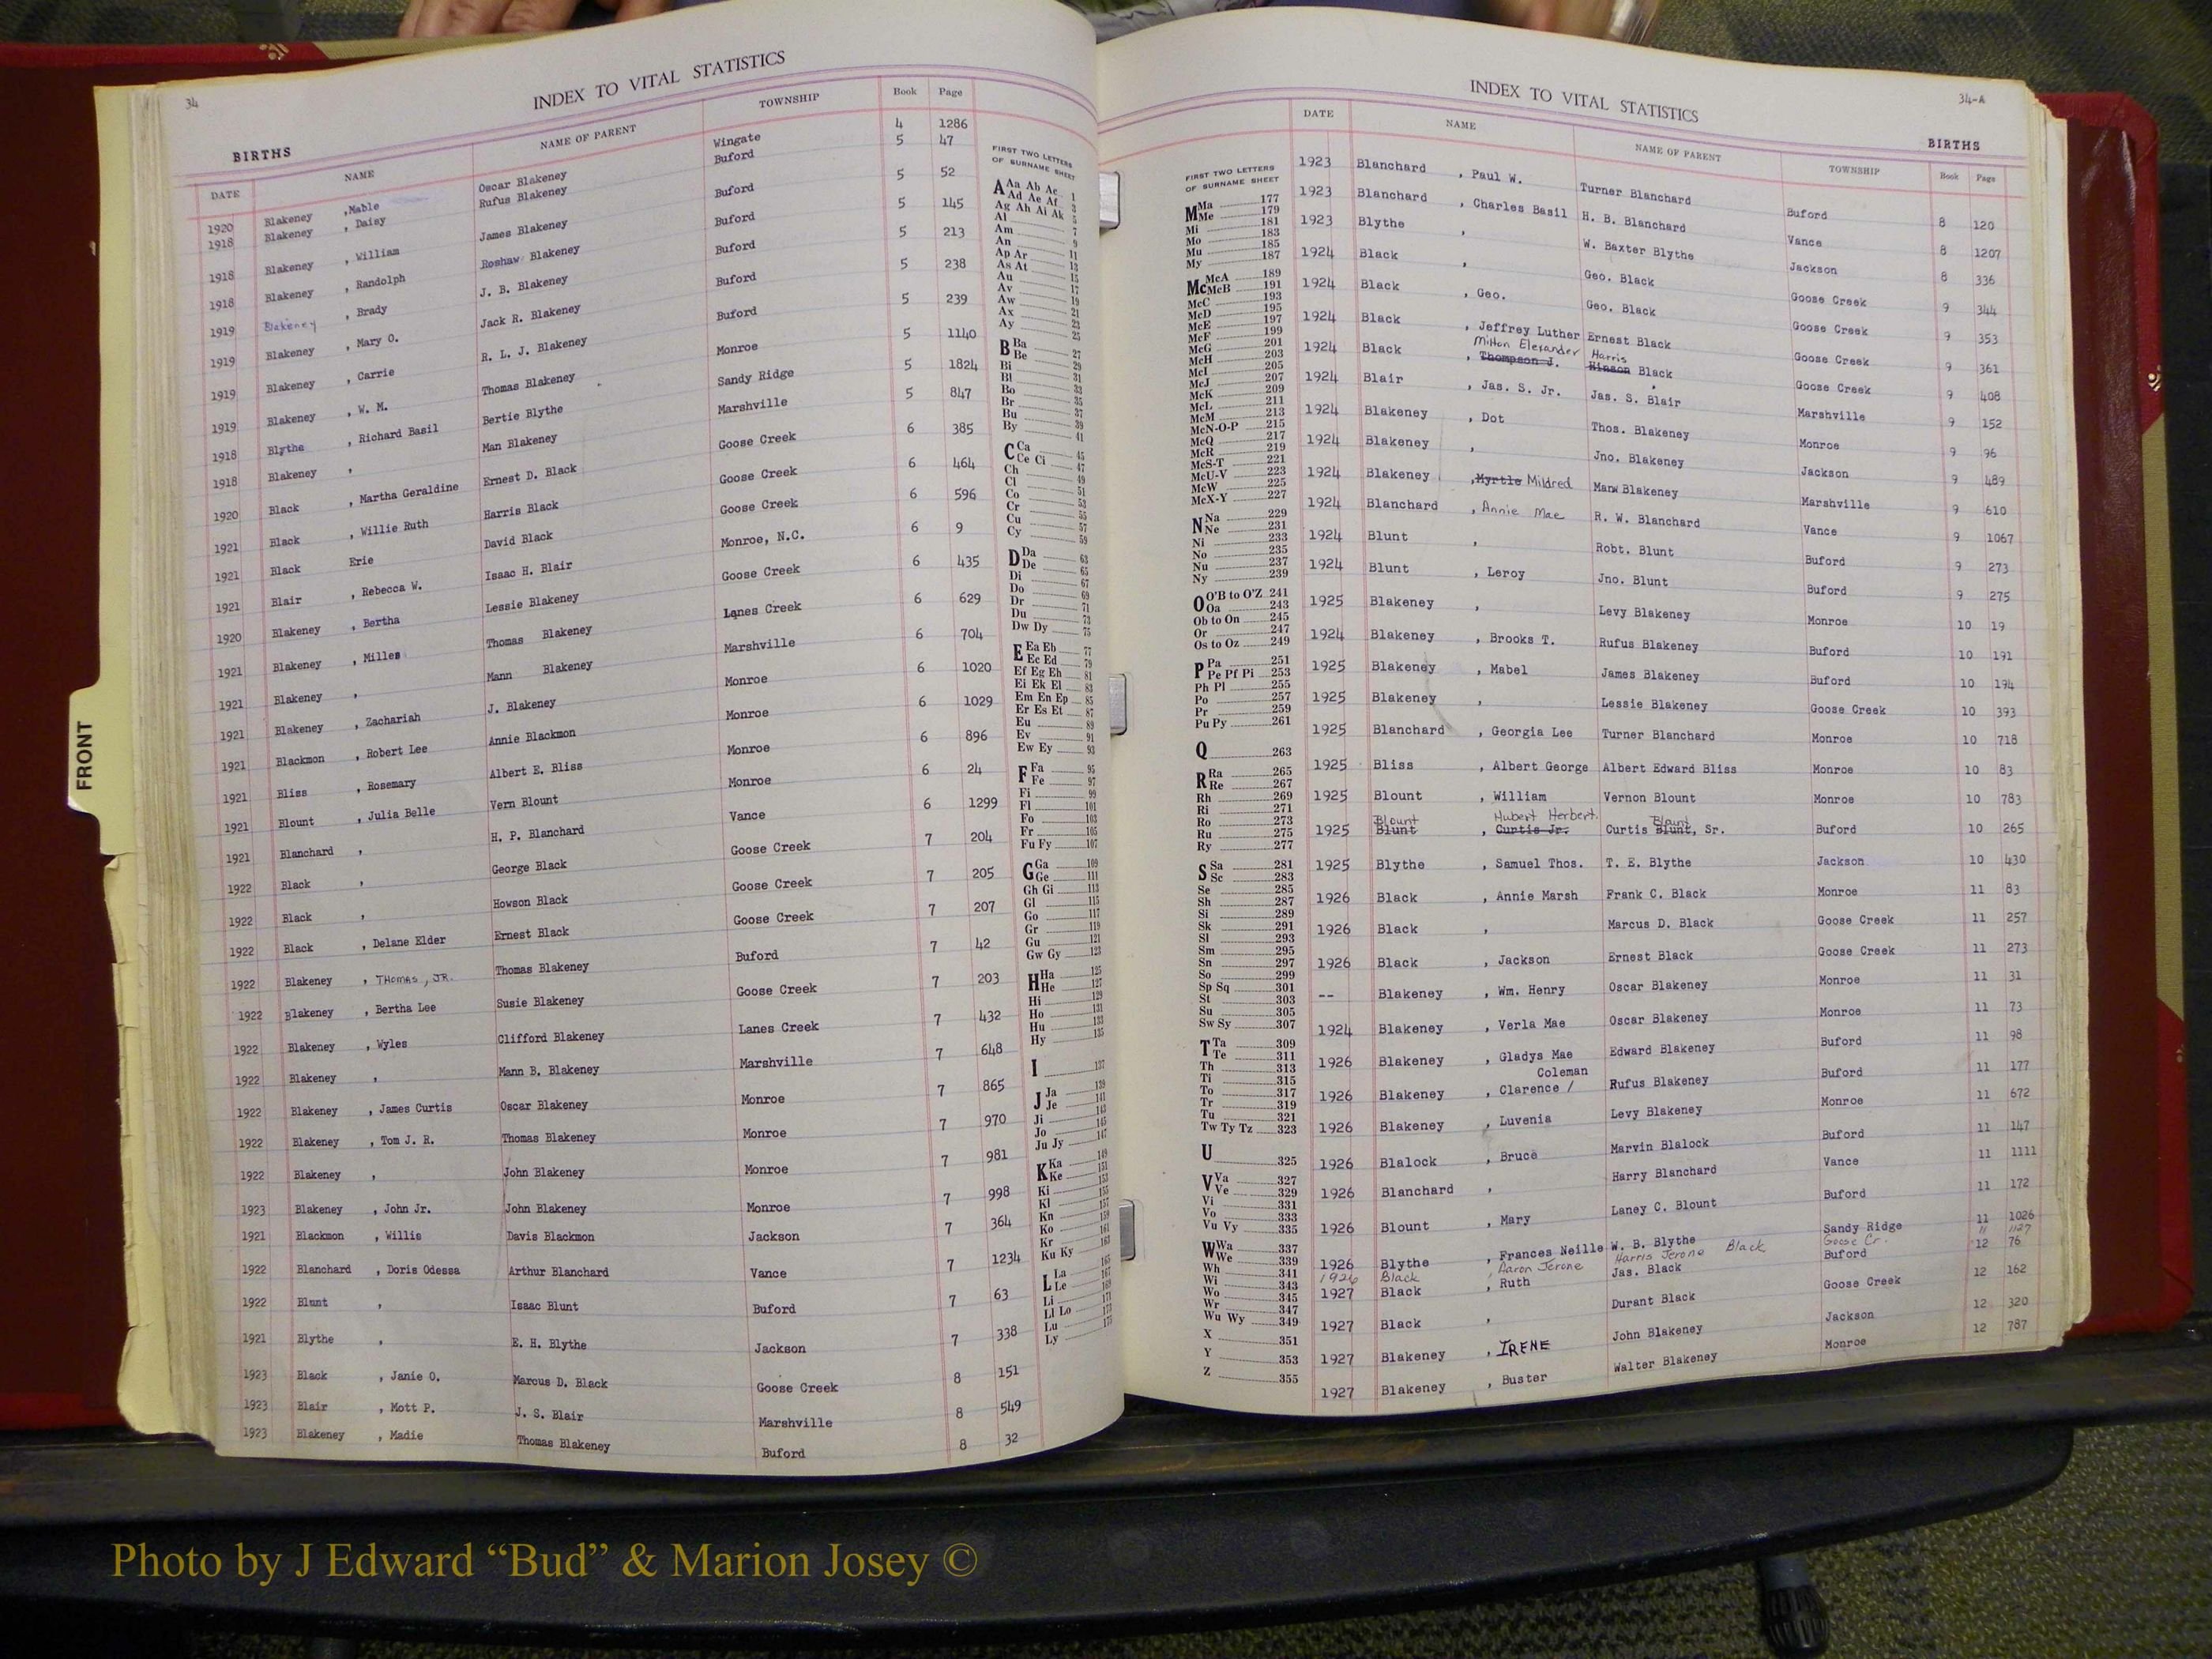 34
INDEX TO VITAL STATISTICS
BIRTHS
DATE NAME NAME OF PARENT TOWNSHIP Book Page
1920 Blakeney ,Mable Oscar Blakeney Wingate 4 1286
1918 Blakeney , Daisy Rufus Blakeney Buford 5 47
1918 Blakeney , William James Blakeney Buford 5 52
1918 Blakeney , Randolph Roshaw Blakeney Buford 5 145
1919 Blakeney , Brady J. B. Blakeney Buford 5 213
1919 Blakeney , Mary O. Jack R. Blakeney Buford 5 238
1919 Blakeney , Carrie R. L. J. Blakeney Buford 5 239
1919 Blakeney , W. M. Thomas Blakeney Monroe 5 1140
1918 Blythe , Richard Basil Bertie Blythe Sandy Ridge 5 1824
1918 Blakeney , Man Blakeney Marshville 5 847
1920 Black , Martha Geraldine Ernest D. Black Goose Creek 6 385
1921 Black , Willie Ruth Harris Black Goose Creek 6 464
1921 Black Erie David Black Goose Creek 6 596
1921 Blair , Rebecca W. Isaac H. Blair Monroe, N.C. 6 9
1920 Blakeney , Bertha Lessie Blakeney Goose Creek 6 435
1921 Blakeney , Milles Thomas Blakeney Lanes Creek 6 629
1921 Blakeney , Mann Blakeney Marshville 6 704
1921 Blakeney , Zachariah J. Blakeney Monroe 6 1020
1921 Blackmon , Robert Lee Annie Blackmon Monroe 6 1029
1921 Bliss , Rosemary Albert E. Bliss Monroe 6 896
1921 Blount , Julia Belle Vern Blount Monroe 6 24
1921 Blanchard , H. P. Blanchard Vance 6 1299
1922 Black , George Black Goose Creek 7 204
1922 Black , Howson Black Goose Creek 7 205
1922 Black , Delane Elder Ernest Black Goose Creek 7 207
1922 Blakeney , THOMAS, JR. Thomas Blakeney Buford 7 42
1922 Blakeney , Bertha Lee Susie Blakeney Goose Creek 7 203
1922 Blakeney , Wyles Clifford Blakeney Lanes Creek 7 432
1922 Blakeney , Mann B. Blakeney Marshville 7 648
1922 Blakeney , James Curtis Oscar Blakeney Monroe 7 865
1922 Blakeney , Tom J. R. Thomas Blakeney Monroe 7 970
1922 Blakeney , John Blakeney Monroe 7 981
1923 Blakeney , John Jr. John Blakeney Monroe 7 998
1921 Blackmon , Willis Davis Blackmon Jackson 7 364
1922 Blanchard , Doris Odessa Arthur Blanchard Vance 7 1234
1922 Blunt , Isaac Blunt Buford 7 63
1921 Blythe , E. H. Blythe Jackson 7 338
1923 Black , Janie O. Marcus D. Black Goose Creek 8 151
1923 Blair , Mott P. J. S. Blair Marshville 8 549
1923 Blakeney , Madie Thomas Blakeney Buford 8 32
FIRST TWO LETTERS
OF SURNAME SHEET
A Aa Ab Ac 1
Ad Ae Af 3
Ag Ah Ai Ak 5
Al 7
Am 9
An 11
Ap Ar 13
As At 15
Au 17
Av 19
Aw 21
Ax 23
Ay 25
B Ba 27
Be 29
Bi 31
Bl 33
Bo 35
Br 37
Bu 39
By 41
C Ca 45
Ce Ci 47
Ch 49
Cl 51
Co 53
Cr 55
Cu 57
Cy 59
D Da 63
De 65
Di 67
Do 69
Dr 71
Du 73
Dw Dy 75
E Ea Eb 77
Ec Ed 79
Ef Eg Eh 81
Ei Ek El 83
Em En Ep 85
Er Es Et 87
Eu 89
Ev 91
Ew Ey 93
F Fa 95
Fe 97
Fi 99
Fl 101
Fo 103
Fr 105
Fu Fy 107
G Ga 109
Ge 111
Gh Gi 113
Gl 115
Go 117
Gr 119
Gu 121
Gw Gy 123
H Ha 125
He 127
Hi 129
Ho 131
Hu 133
Hy 135
I 137
J Ja 139
Je 141
Ji 143
Jo 145
Ju Jy 147
K Ka 149
Ke 151
Ki 153
Kl 155
Kn 157
Ko 159
Kr 161
Ku Ky 163
L La 165
Le 167
Li 169
Ll Lo 171
Lu 173
Ly
FRONT
34-A
INDEX TO VITAL STATISTICS
BIRTHS
FIRST TWO LETTERS
OF SURNAME SHEET
M Ma 177
Me 179
Mi 181
Mo 183
Mu 185
My 187
Mc McA 189
McB 191
McC 193
McD 195
McE 197
McF 199
McG 201
McH 203
McI 205
McJ 207
McK 209
McL 211
McM 213
McN-O-P 215
McQ 217
McR 219
McS-T 221
McU-V 223
McW 225
McX-Y 227
N Na 229
Ne 231
Ni 233
No 235
Nu 237
Ny 239
O O'B to O'Z 241
Oa 243
Ob to On 245
Or 247
Os to Oz 249
P Pa 251
Pe Pf Pi 253
Ph Pl 255
Po 257
Pr 259
Pu Py 261
Q 263
R Ra 265
Re 267
Rh 269
Ri 271
Ro 273
Ru 275
Ry 277
S Sa 281
Sc 283
Se 285
Sh 287
Si 289
Sk 291
Sl 293
Sm 295
Sn 297
So 299
Sp Sq 301
St 303
Su 305
Sw Sy 307
T Ta 309
Te 311
Th 313
Ti 315
To 317
Tr 319
Tu 321
Tw Ty Tz 323
U 325
V Va 327
Ve 329
Vi 331
Vo 333
Vu Vy 335
W Wa 337
We 339
Wh 341
Wi 343
Wo 345
Wr 347
Wu Wy 349
X 351
Y 353
Z 355
DATE NAME NAME OF PARENT TOWNSHIP Book Page
1923 Blanchard , Paul W. Turner Blanchard Buford 8 120
1923 Blanchard , Charles Basil H. B. Blanchard Vance 8 1207
1923 Blythe , W. Baxter Blythe Jackson 8 336
1924 Black , Geo. Black Goose Creek 9 344
1924 Black , Geo. Geo. Black Goose Creek 9 353
1924 Black , Jeffrey Luther Ernest Black Goose Creek 9 361
Milton Elexander Harris
1924 Black , Thompson J. Hinson Black Goose Creek 9 408
1924 Blair , Jas. S. Jr. Jas. S. Blair Marshville 9 152
1924 Blakeney , Dot Thos. Blakeney Monroe 9 96
1924 Blakeney , Jno. Blakeney Jackson 9 489
1924 Blakeney ,Myrtle Mildred Mann Blakeney Marshville 9 610
1924 Blanchard , Annie Mae R. W. Blanchard Vance 9 1067
1924 Blunt , Robt. Blunt Buford 9 273
1924 Blunt , Leroy Jno. Blunt Buford 9 275
1925 Blakeney , Levy Blakeney Monroe 10 19
1924 Blakeney , Brooks T. Rufus Blakeney Buford 10 191
1925 Blakeney , Mabel James Blakeney Buford 10 194
1925 Blakeney , Lessie Blakeney Goose Creek 10 393
1925 Blanchard , Georgia Lee Turner Blanchard Monroe 10 718
1925 Bliss , Albert George Albert Edward Bliss Monroe 10 83
1925 Blount , William Vernon Blount Monroe 10 783
Blount Hubert Herbert. Blount
1925 Blunt , Curtis Jr. Curtis Blunt, Sr. Buford 10 265
1925 Blythe , Samuel Thos. T. E. Blythe Jackson 10 430
1926 Black , Annie Marsh Frank C. Black Monroe 11 83
1926 Black , Marcus D. Black Goose Creek 11 257
1926 Black , Jackson Ernest Black Goose Creek 11 273
-- Blakeney , Wm. Henry Oscar Blakeney Monroe 11 31
1924 Blakeney , Verla Mae Oscar Blakeney Monroe 11 73
1926 Blakeney , Gladys Mae Edward Blakeney Buford 11 98
Coleman
1926 Blakeney , Clarence / Rufus Blakeney Buford 11 177
1926 Blakeney , Luvenia Levy Blakeney Monroe 11 672
1926 Blalock , Bruce Marvin Blalock Buford 11 147
1926 Blanchard , Harry Blanchard Vance 11 1111
1926 Blount , Mary Laney C. Blount Buford 11 172
1926 Blythe , Frances Neille W. B. Blythe Sandy Ridge 11 1026
1926 Black , Aaron Jerone Harris Jerone Black Goose Cr. 11 1127
1927 Black , Ruth Jas. Black Buford 12 76
1927 Black , Durant Black Goose Creek 12 162
1927 Blakeney , IRENE John Blakeney Jackson 12 320
1927 Blakeney , Buster Walter Blakeney Monroe 12 787
Photo by J Edward “Bud” & Marion Josey ©